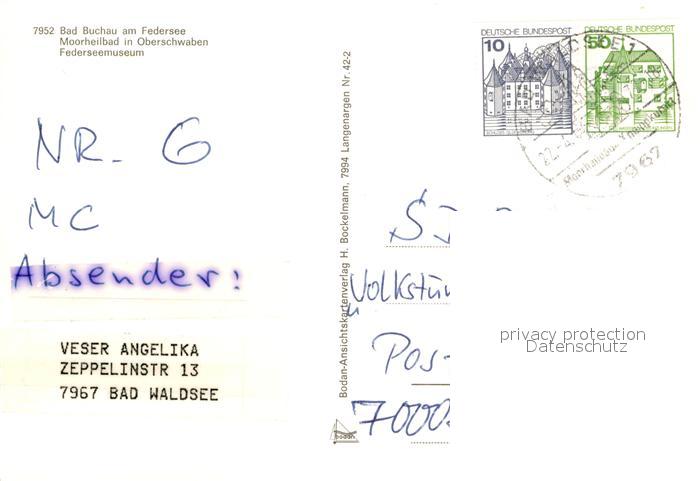 7952 Bad Buchau am Federsee
Moorheilbad in Oberschwaben
Federseemuseum
NR. 6
MC
Absender:
VESER ANGELIKA
ZEPPELINSTR 13
7967 BAD WALDSEE
Bodan-Ansichtskartenverlag H. Bockelmann, 7994 Langenargen Nr. 42-2
bodan
DEUTSCHE BUNDESPOST
10
DEUTSCHE BUNDESPOST
50
7967
Volkstü
Pos
7000
privacy protection
Datenschutz